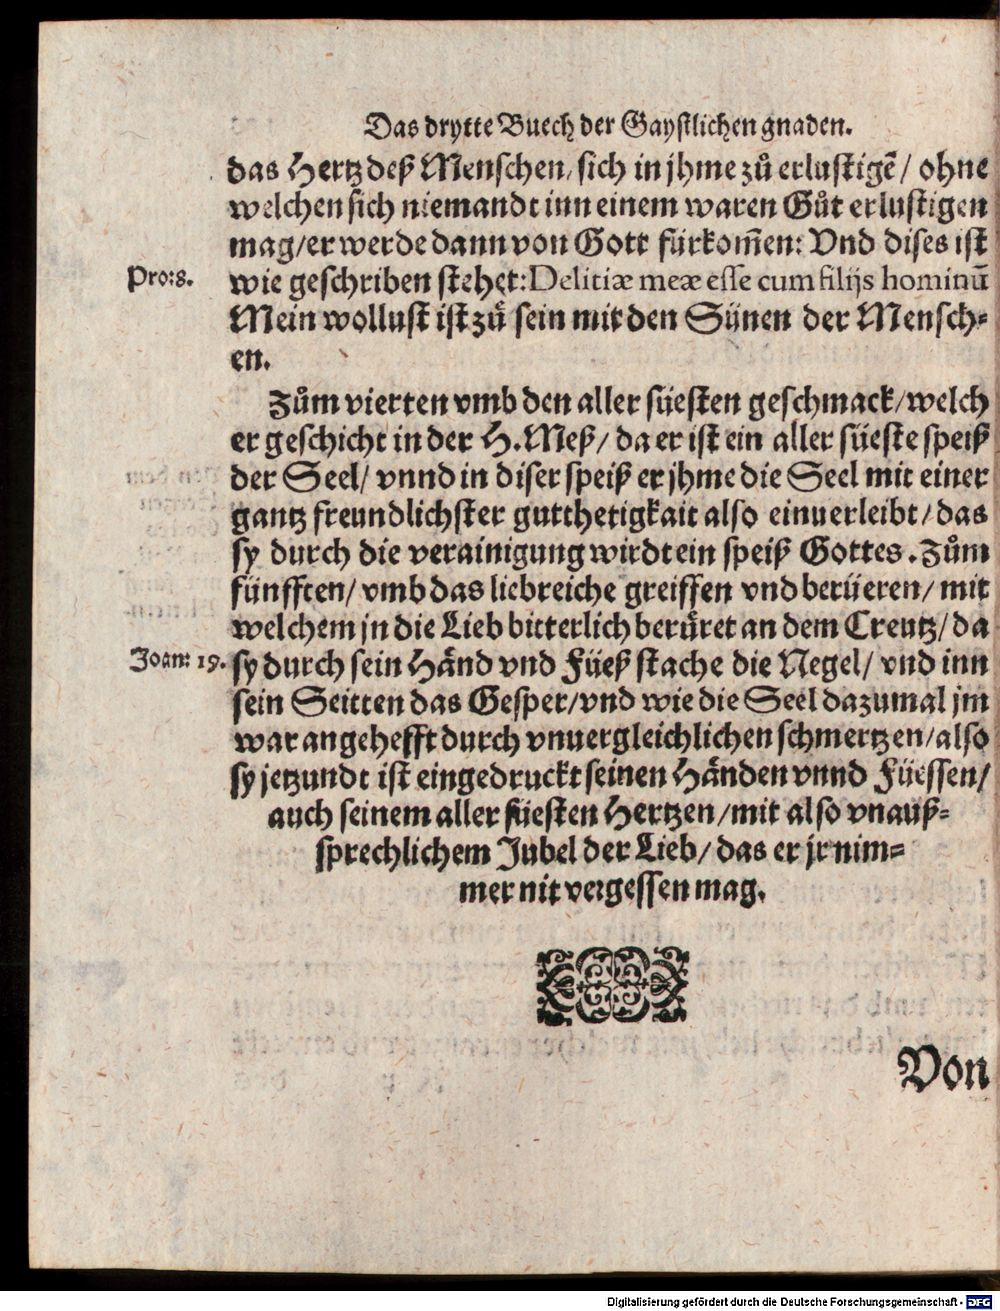 Das drytte Buech der Gaystlichen gnaden.
das Hertz deß Menschen, sich in jhme zů erlustigẽ/ ohne
welchen sich niemandt inn einem waren Gůt erlustigen
mag/ er werde dann von Gott fürkom̃en: Vnd dises ist
Pro: 8.
wie geschriben stehet: Delitiæ meæ esse cum filijs hominũ
Mein wollust ist zů sein mit den Sünen der Mensch⸗
en.
Zům vierten vmb den aller süesten geschmack/ welch
er geschicht in der H. Meß/ da er ist ein aller süeste speiß
der Seel/ vnnd in diser speiß er jhme die Seel mit einer
gantz freundlichster gutthetigkait also einuerleibt/ das
sy durch die verainigung wirdt ein speiß Gottes. Zům
fünfften/ vmb das liebreiche greiffen vnd berüeren/ mit
welchem jn die Lieb bitterlich berůret an dem Creutz/ da
Joan: 19.
sy durch sein Händ vnd Füeß stache die Negel/ vnd inn
sein Seitten das Gesper/ vnd wie die Seel dazumal jm
war angehefft durch vnuergleichlichen schmertzen/ also
sy jetzundt ist eingedruckt seinen Händen vnnd Füessen/
auch seinem aller süesten Hertzen/ mit also vnauß⸗
sprechlichem Jubel der Lieb/ das er jr nim⸗
mer nit vergessen mag.
Von
Digitalisierung gefördert durch die Deutsche Forschungsgemeinschaft - DFG